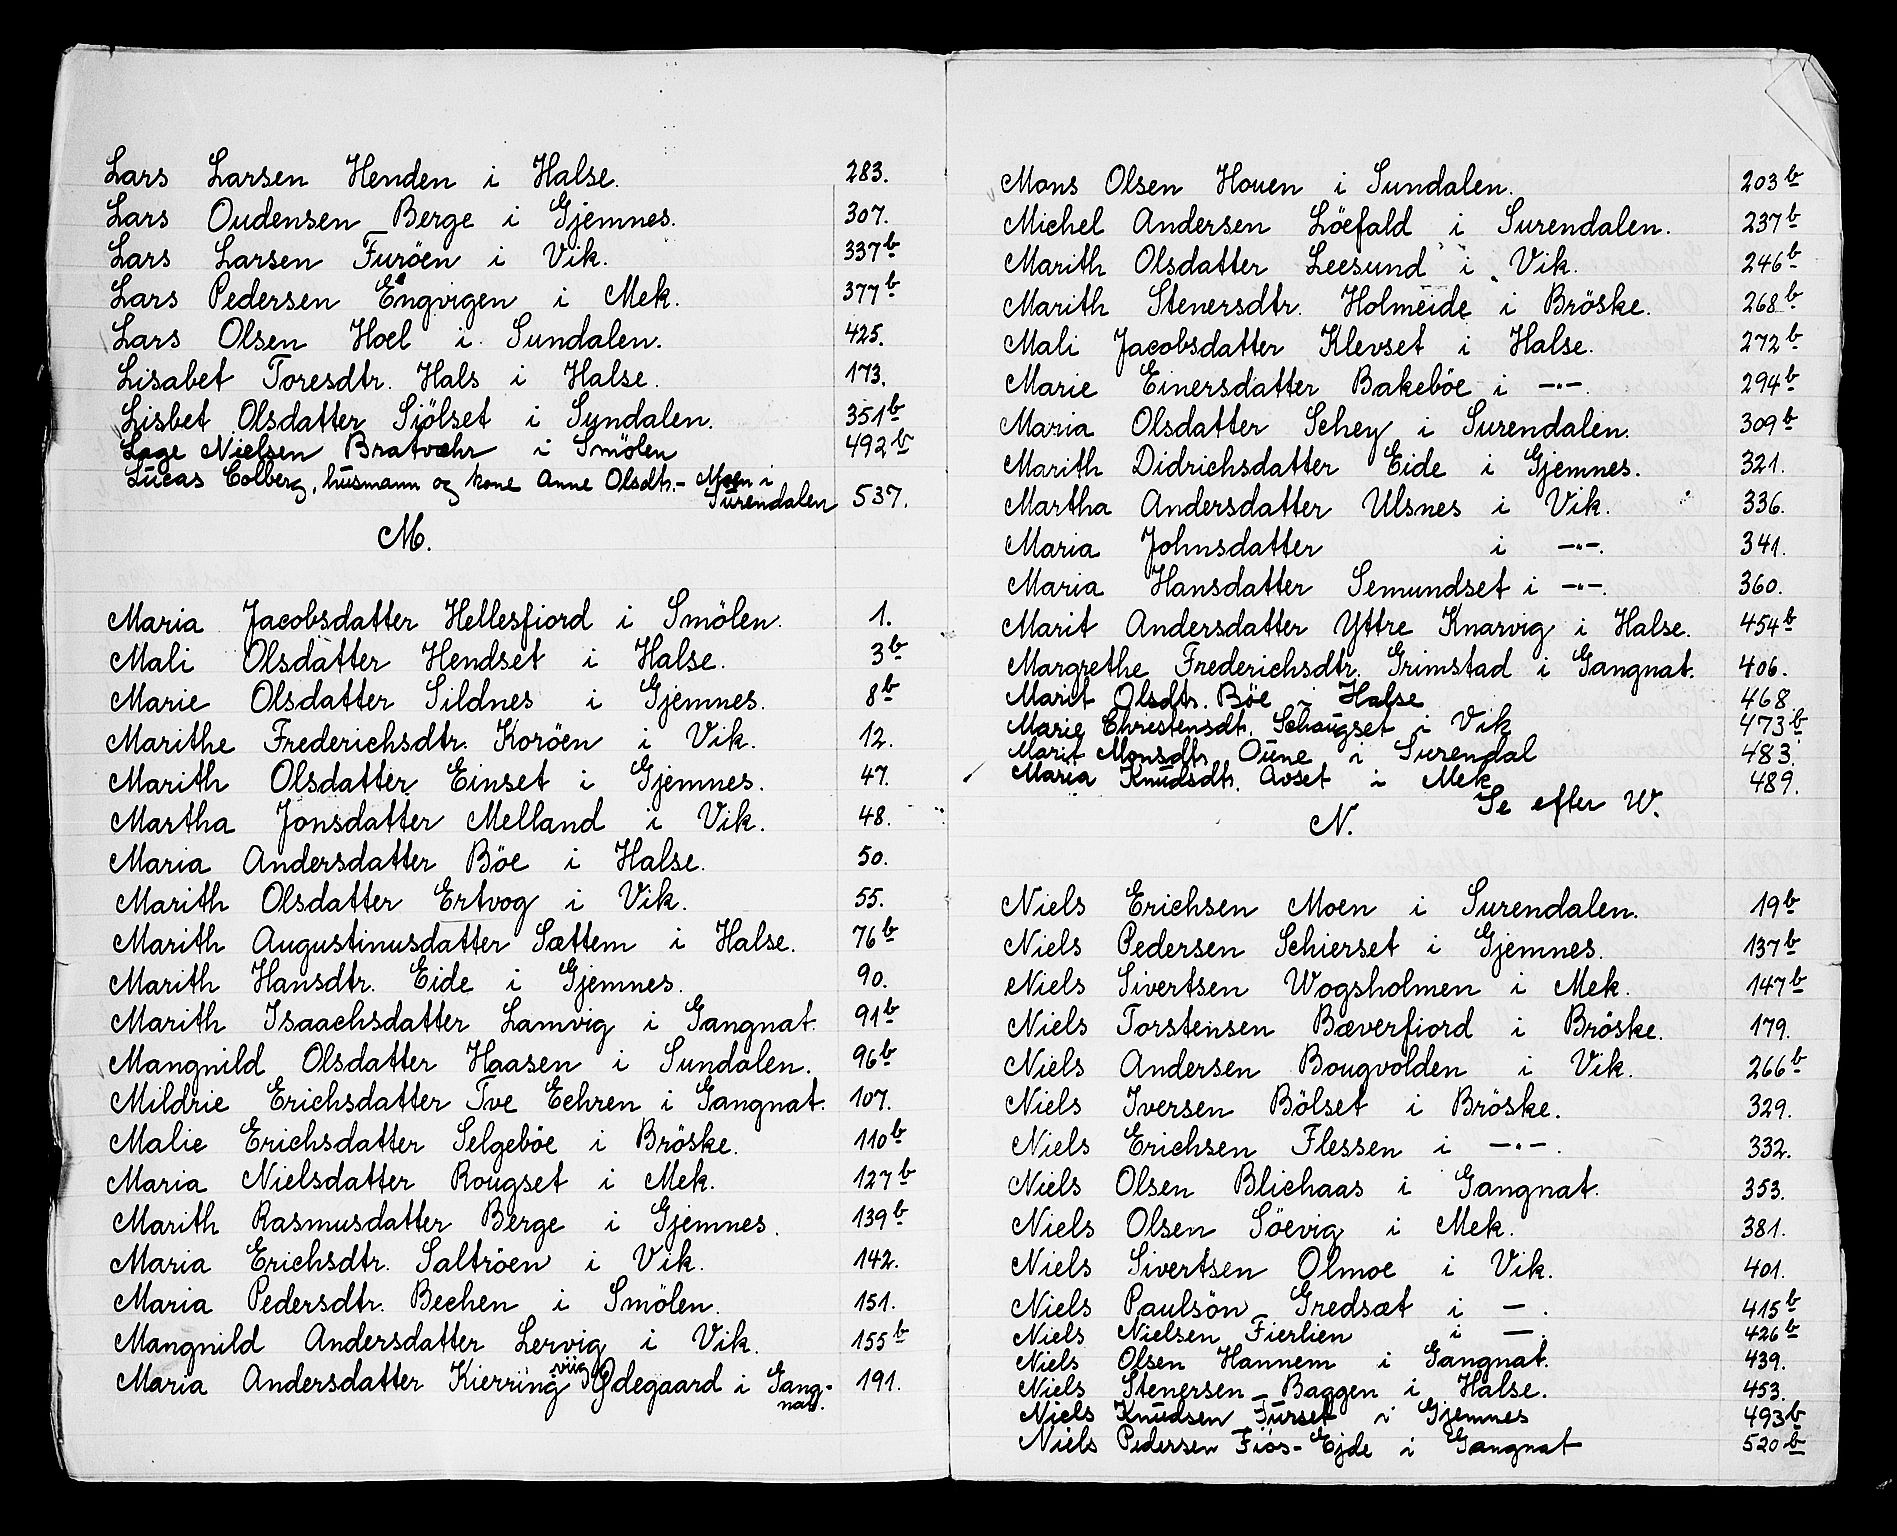 Lars Larsen Henden i Halse. 283.
Lars Oudensen Berge i Gjemnes. 307.
Lars Larsen Furöen i Vik. 337b
Lars Pedersen Engvigen i Mek. 377b
Lars Olsen Hoel i Sundalen. 425.
Lisabet Toresdtr. Hals i Halse. 173.
Lisbet Olsdatter Siölset i Sundalen. 351b
Lage Nielsen Bratvæhr i Smölen 492b
Lucas Colberg, husmann og kone Anne Olsdtr.- Moen i
Surendalen 537.
M.
Maria Jacobsdatter Hellesfiord i Smölen. 1.
Mali Olsdatter Hendset i Halse. 3b
Marie Olsdatter Sildnes i Gjemnes. 8b
Marithe Frederichsdtr. Koröen i Vik. 12.
Marith Olsdatter Einset i Gjemnes. 47.
Martha Jonsdatter Melland i Vik. 48.
Maria Andersdatter Böe i Halse. 50.
Marith Olsdatter Ertvog i Vik. 55.
Marith Augustinusdatter Sættem i Halse. 76b
Marith Hansdtr. Eide i Gjemnes. 90.
Marith Isaachsdatter Lamvig i Gangnat. 91b
Mangnild Olsdatter Haasen i Sundalen. 96b
Mildrie Erichsdatter Tve Echren i Gangnat. 107.
Malie Erichsdatter Selgeböe i Bröske. 110b
Maria Nielsdatter Rougset i Mek. 127b
Marith Rasmusdatter Berge i Gjemnes. 139b
Maria Erichsdtr. Saltröen i Vik. 142.
Maria Pedersdtr. Bechen i Smölen. 151.
Mangnild Andersdatter Lervig i Vik. 155b
Maria Andersdatter Kierringviig Ødegaard i Gang-
nat. 191.
Mons Olsen Houen i Sundalen. 203b
Michel Andersen Löefald i Surendalen. 237b
Marith Olsdatter Leesund i Vik. 246b
Marith Stenersdtr. Holmeide i Bröske. 268b
Mali Jacobsdatter Klevset i Halse. 272b
Marie Einersdatter Bakeböe i -"- 294b
Maria Olsdatter Schey i Surendalen. 309b
Marith Didrichsdatter Eide i Gjemnes. 321.
Martha Andersdatter Ulsnes i Vik. 336.
Maria Johnsdatter i -"-. 341.
Maria Hansdatter Semundset i -"-. 360.
Marit Andersdatter Yttre Knarvig i Halse. 454b
Margrethe Frederichsdtr. Grimstad i Gangnat. 406.
Marit Olsdtr. Böe i Halse 468
Marie Chrestensdtr. Schougset i Vik 473b
Marit Monsdtr. Oune i Surendal 483.
Maria Knudsdtr. Avset i Mek 489.
Se efter W.
N.
Niels Erichsen Moen i Surendalen. 19b
Niels Pedersen Schierset i Gjemnes. 137b
Niels Sivertsen Wogsholmen i Mek. 147b
Niels Torstensen Bæverfiord i Bröske. 179.
Niels Andersen Bougvolden i Vik. 266b
Niels Iversen Bölset i Bröske. 329.
Niels Erichsen Flessen i -"-. 332.
Niels Olsen Blichaas i Gangnat. 353.
Niels Olsen Söevig i Mek. 381.
Niels Sivertsen Olmoe i Vik. 401.
Niels Paulsön Gredsæt i -. 415b
Niels Nielsen Fierlien i -. 426b
Niels Olsen Hannem i Gangnat. 439.
Niels Stenersen Baggen i Halse. 453.
Niels Knudsen Furset i Gjemnes 493b
Niels Pedersen Fiös-Ejde i Gangnat 520b